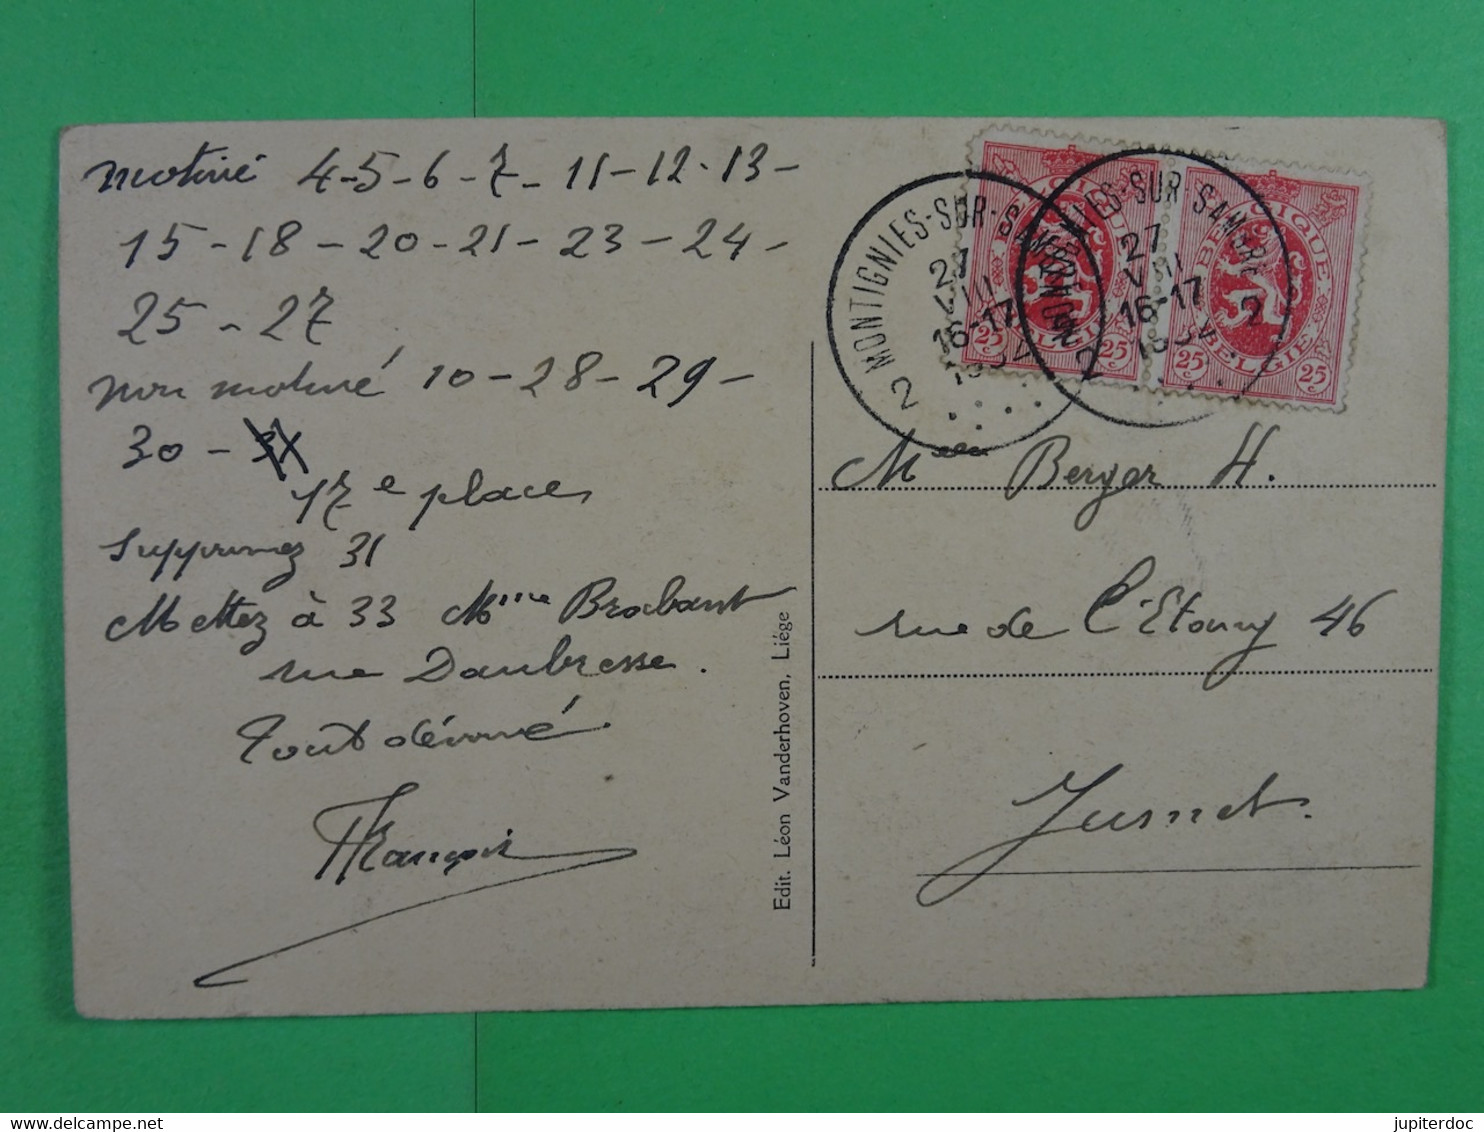 motivé 4-5-6-7-11-12-13-
15-18-20-21-23-24-
25-27
non motivé 10-28-29-
30-31
17e place
supprimez 31
Mettez à 33 Mme Brabant
rue Daubresse.
Tout dévoué
François
Edit. Léon Vanderhoven, Liége
MONTIGNIES-SUR-SAMBRE 2
27
VIII
16-17
1932
MONTIGNIES-SUR-SAMBRE 2
27
VIII
16-17
1932
BELGIQUE
25c 25c
BELGIË
BELGIQUE
25c 25c
BELGIE
Melle Berger H.
rue de l'Etang 46
Jumet.
jupiterdoc
delcampe.net